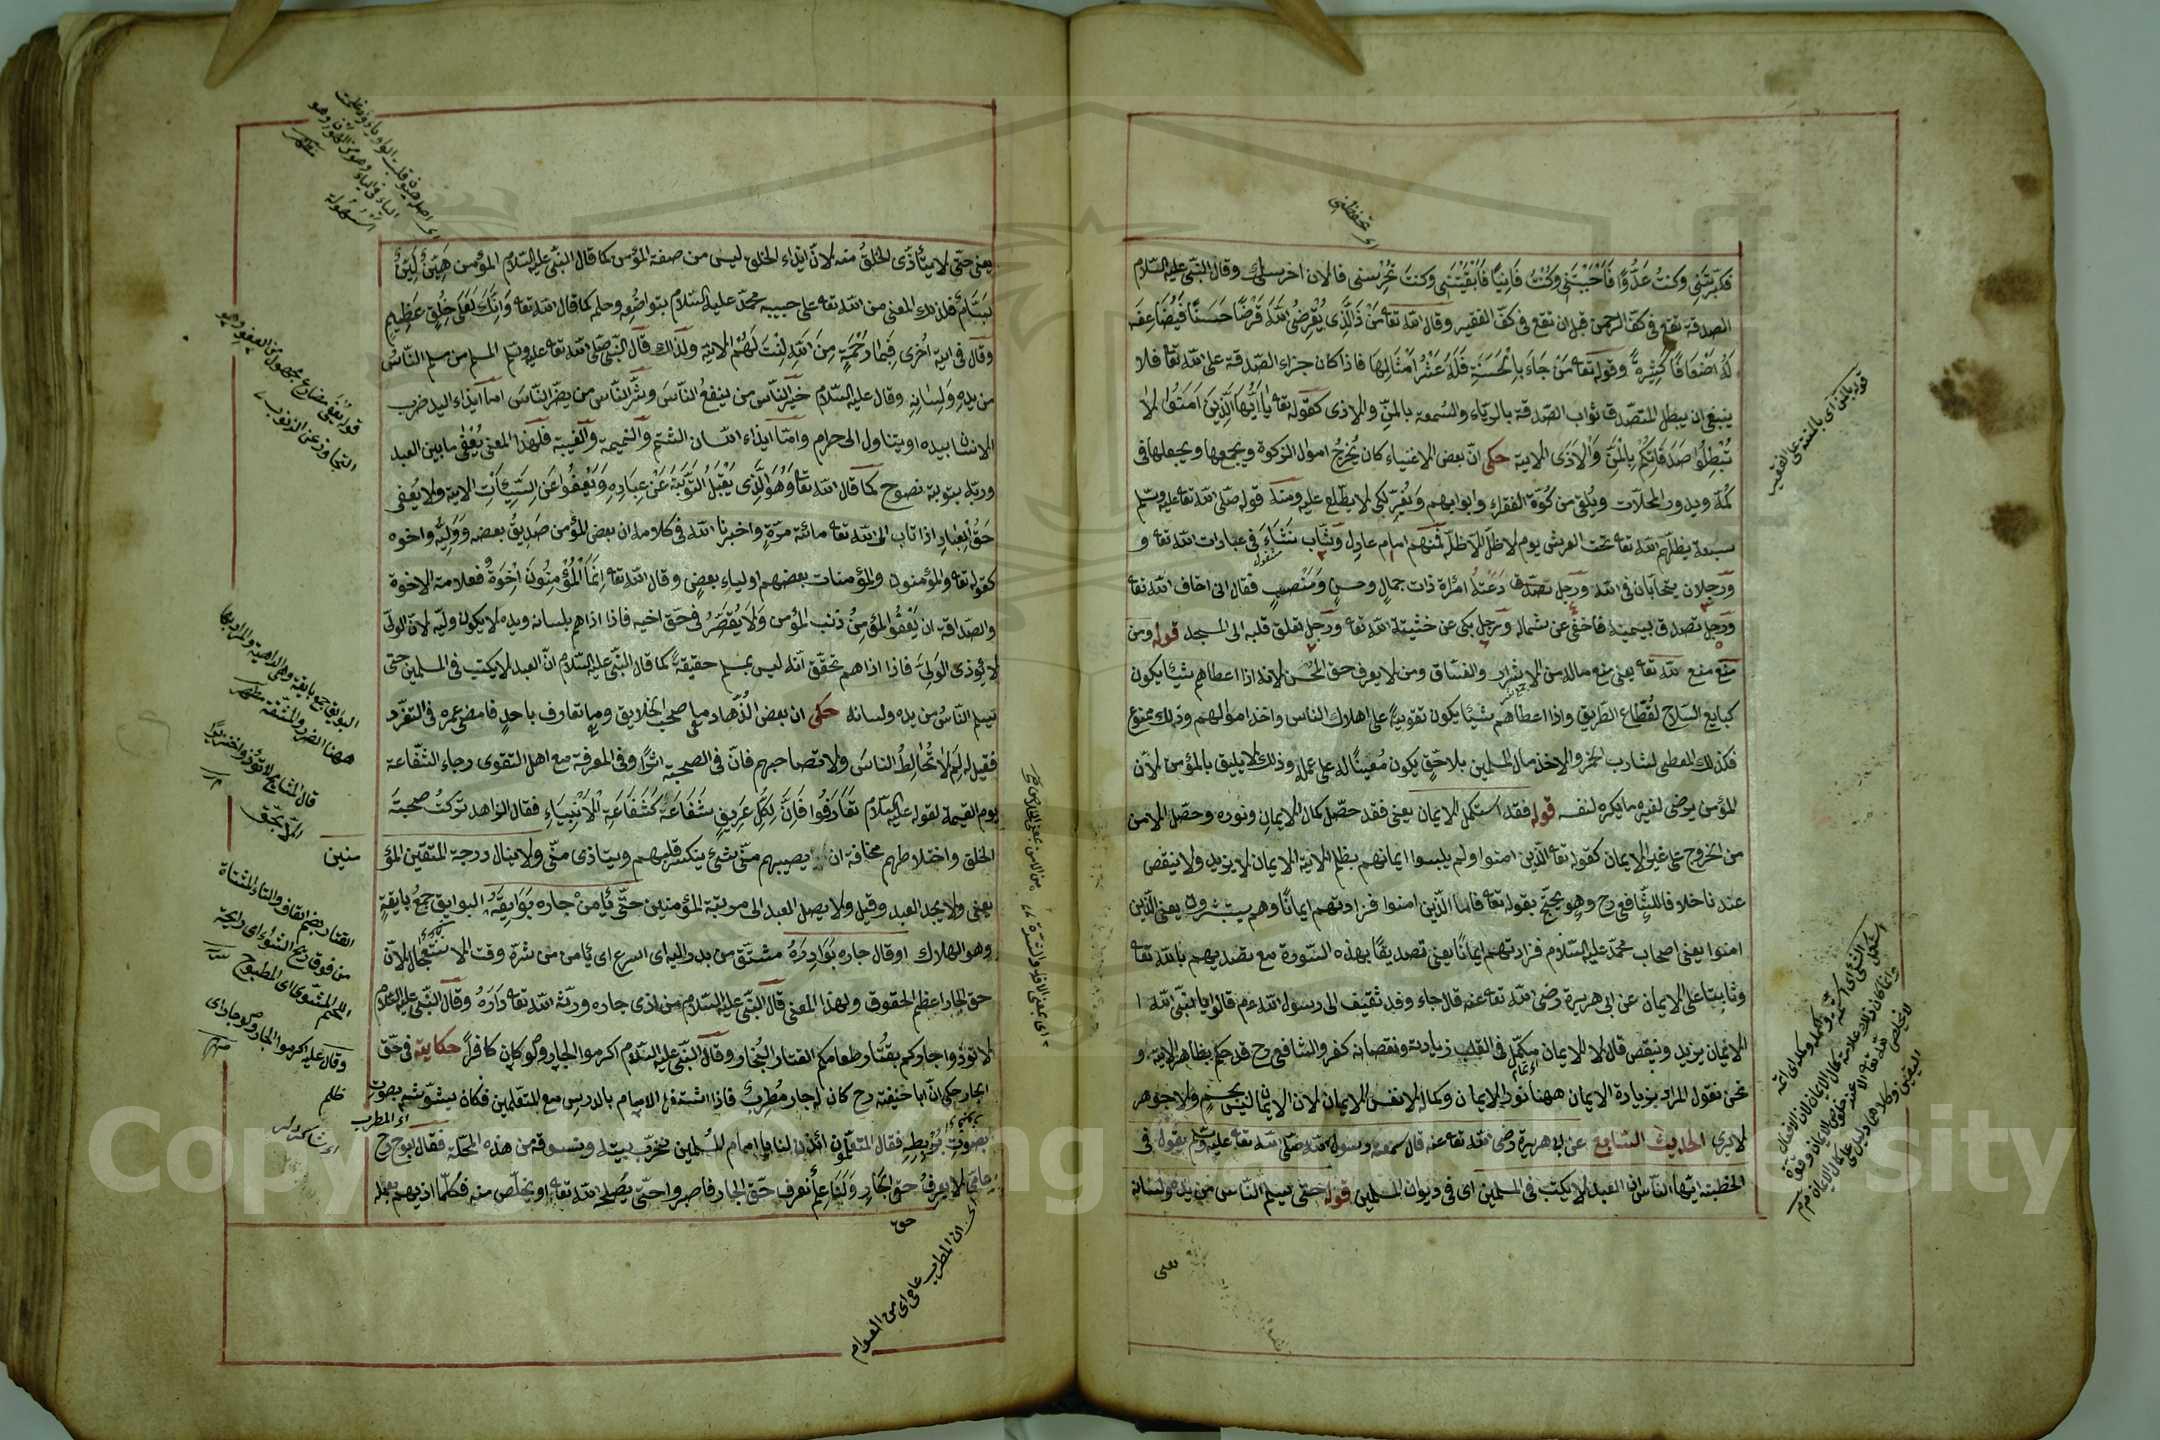 فكبرتني وكنت عدوا فاحببتني وكنت فانيا فابقيتني وكنت تحرسني فالان احرسك وقال النبي عليه السلام
الصدقة تقع في كف الرحمن قبل ان تقع في كف الفقير وقال الله تعا من ذا الذي يقرض الله قرضا حسنا فيضاعفه
له اضعافا كثيرة وقوله تعا من جاء بالحسنة فله عشر امثالها فاذا كان جزاء الصدقة على الله تعا فلا
ينبغي ان يبطل المتصدق ثواب الصدقة بالرياء والسمعة بالمن والاذى كقوله تعا يا ايها الذين امنوا لا
تبطلوا صدقاتكم بالمن والاذى الاية حكى ان بعض الاغنياء كان يخرج اموال الزكوة ويجمعها ويجعلها في
كمه ويدور المحلات ويلقي من كوة الفقراء وابوابهم ويفر لكي لا يطلع عليه ومنه قوله صلى الله تعا عليه وسلم
سبعة يظلهم الله تعا تحت العرش يوم لا ظل الا ظله فمنهم امام عادل وشاب نشاء في عبادات الله تعا و
ورجلان يتحابان في الله ورجل دعته امراة ذات جمال وحسن ومنصب فقال اني اخاف الله تعا
ورجل تصدق بيمينه فاخفى عن شماله ورجل بكى عن خشية الله تعا ورجل تعلق قلبه الى المسجد قوله ومن
منع منع لله تعا يعني منع ماله من الاشرار والفساق ومن لا يعرف حق المحسن لانه اذا اعطاهم شيئا يكون
كبايع السلاح لقطاع الطريق واذا اعطاهم شيئا يكون تقوية على اهلاك الناس واخذ اموالهم وذلك ممنوع
فكذلك المعطي لشارب الخمر والاخذ مال المسلمين بلا حق يكون معينا له على عمله وذلك لا يليق بالمؤمن لان
المؤمن يرضى لغيره ما يكره لنفسه قوله فقد استكمل الايمان يعني فقد حصل كمال الايمان ونوره وحصل الامن
من الخروج على الايمان كقوله تعا الذين امنوا ولم يلبسوا ايمانهم بظلم الاية الايمان لا يزيد ولا ينقص
عندنا خلافا للشافعي رح وهو يحتج بقوله تعا فاما الذين امنوا فزادتهم ايمانا وهم يستبشرون يعني الذين
امنوا يعني اصحاب محمد عليه السلام فزادتهم ايمانا يعني تصديقا بهذه السورة مع تصديهم بالله تعا
وثابتا على الايمان عن ابي هريرة رضى الله تعا عنه قال جاء وفد ثقيف الى رسول الله عم قالوا يا نبي الله ا
الايمان يزيد وينقص قال لا الايمان مكمل في القلب زيادته ونقصانه كفر والشافعي رح قد حكم بظاهر الاية و
نحن نقول المراد بزيادة الايمان ههنا نور الايمان وكماله لا نفس الايمان لان الايمان ليس بجسم ولا جوهر
الحديث السابع عن ابي هريرة رضى الله تعا عنه قال سمعت رسول الله صلى الله تعا عليه وسلم يقول في
الخطبة ايها الناس ان العبد لا يكتب في المسلمين اي في ديوان المسلمين قوله حتى يسلم الناس من يده ولسانه
قوله بالمن اي بالمنة على الفقير
يعني حتى لا يتأذى الخلق منه لان ايذاء الخلق ليس من صفة المؤمن كما قال النبي عليه السلام المؤمن هين لين
بسام فلذلك المعنى من الله تعا على حبيبه محمد عليه السلام بتواضعه وحلمه كما قال الله تعا وانك لعلى خلق عظيم
وقال في اية اخرى فبما رحمة من الله لنت لهم الاية ولذلك قال النبي صلى الله تعا عليه وسلم المسلم من سلم الناس
من يده ولسانه وقال عليه السلام خير الناس من ينفع الناس وشر الناس من يضر الناس اما ايذاء اليد ضرب
الانسان بيده او يتناول الى حرام واما ايذاء اللسان الشتم والنميمة والغيبة فلهذا المعنى يعفى ما بين العبد
وربه بتوبة نصوح كما قال الله تعا وهو الذي يقبل التوبة عن عباده ويعفوا عن السيئات الاية ولا يعفى
حق العباد اذا تاب الى الله تعا مائة مرة واخبرنا الله في كلامه ان بعض المؤمن صديق بعضه ووليه واخوه
كقوله تعا والمؤمنون والمؤمنات بعضهم اولياء بعض وقال الله تعا انما المؤمنون اخوة فعلامة الاخوة
والصداقة ان يعفو المؤمن ذنب المؤمن ولا يقصر في حق اخيه فاذا اذاهم بلسانه ويده لا يكون وليه لان الولي
لا يوذي الولي فاذا اذاهم تحقق انه ليس بمسلم حقيقة كما قال النبي عليه السلام ان العبد لا يكتب في المسلمين حتى
يسلم الناس من يده ولسانه حكى ان بعض الزهاد ما صحب الخلايق وما تعارف باحد فامضى عمره في التفرد
فقيل له لم لا تخالط الناس ولا تصاحبهم فان في الصحبة اثرا وفي المعرفة مع اهل التقوى رجاء الشفاعة
يوم القيمة لقوله عليه السلام تعارفوا فان لكل عريف شفاعة كشفاعة الانبياء فقال الزاهد تركت صحبة
الخلق واختلاطهم مخافة ان يصيبهم مني شيئ ينكسر قلبهم ويتاذى مني ولا ينال درجة المتقين المؤ
يعني ولا يجد العبد وقيل ولا يصل العبد الى مرتبة المؤمنين حتى يأمن جاره بوايقه البوايق جمع بايقة
وهو الهلاك او قال جاره بوادره مشتق من بدر اليه اي اسرع اي يأمن من شره وقت الاستعجال لان
حق الجار اعظم الحقوق ولهذا المعنى قال النبي عليه السلام من اذى جاره ورثه الله تعا داره وقال النبي عليه السلام
لا توذوا جاركم بقتار طعامكم القتار البخار وقال النبي عليه السلام اكرموا الجار ولو كان كافرا حكاية في حق
الجار حكى ان ابا حنيفة رح كان له جار مطرب فاذا اشتغل الامام بالدرس مع المتعلمين فكان يشوشهم بصوت
بصوت بربطه فقال المتعلمون ائذن لنا يا امام المسلمين نخرب بيته ونسوقه من هذه المحلة فقال ابوح رح
عامي لا يعرف حق الجار ونحن نعرف حق الجار فاصبروا حتى يصلحه الله تعا او يخلص منه فكلما اذيهم بعمله
حق
اي ان المطرب عامي اي من العوام
سنين
القتار بضم القاف والتاء المثناة
من فوق ريح الشواء اي رايحة
اللحم المشوي اي المطبوخ
وقال عليه اكرموا الجار ولو جار اي
ظلم
اي المطرب